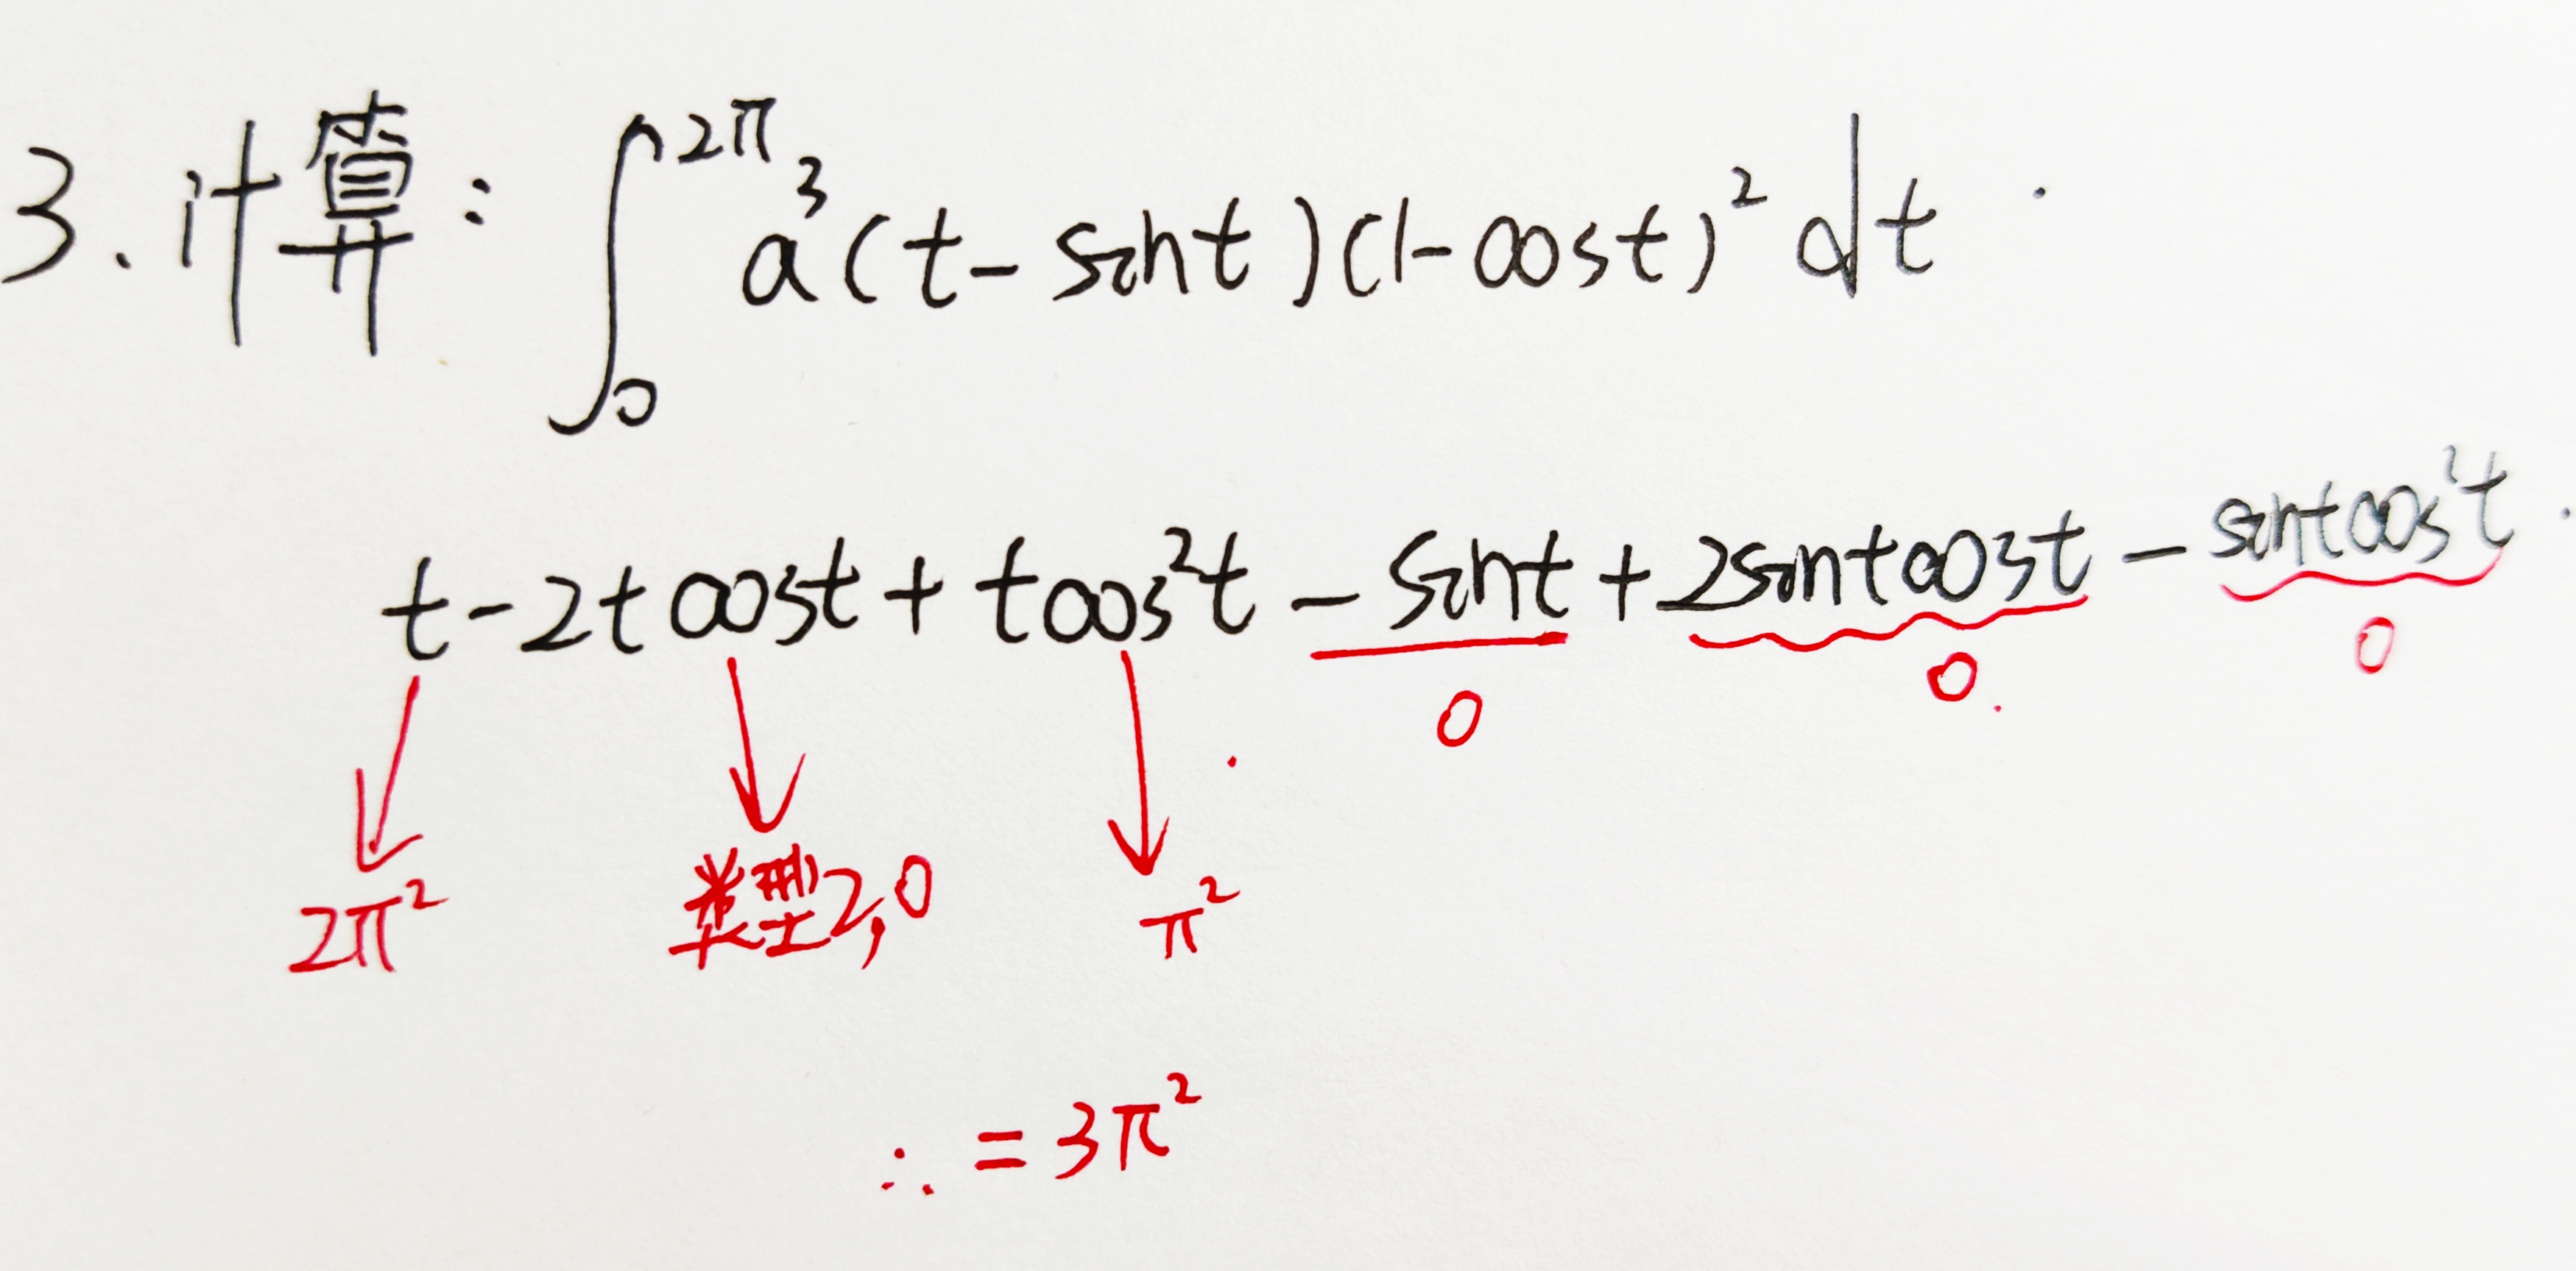 3. 计算: ∫₀^2π a³(t-sint)(1-cost)² dt
t-2tcost+tcos²t-sint+2sintcost-sintcos²t
0 0 0
2π² 类型2,0 π²
∴ =3π²